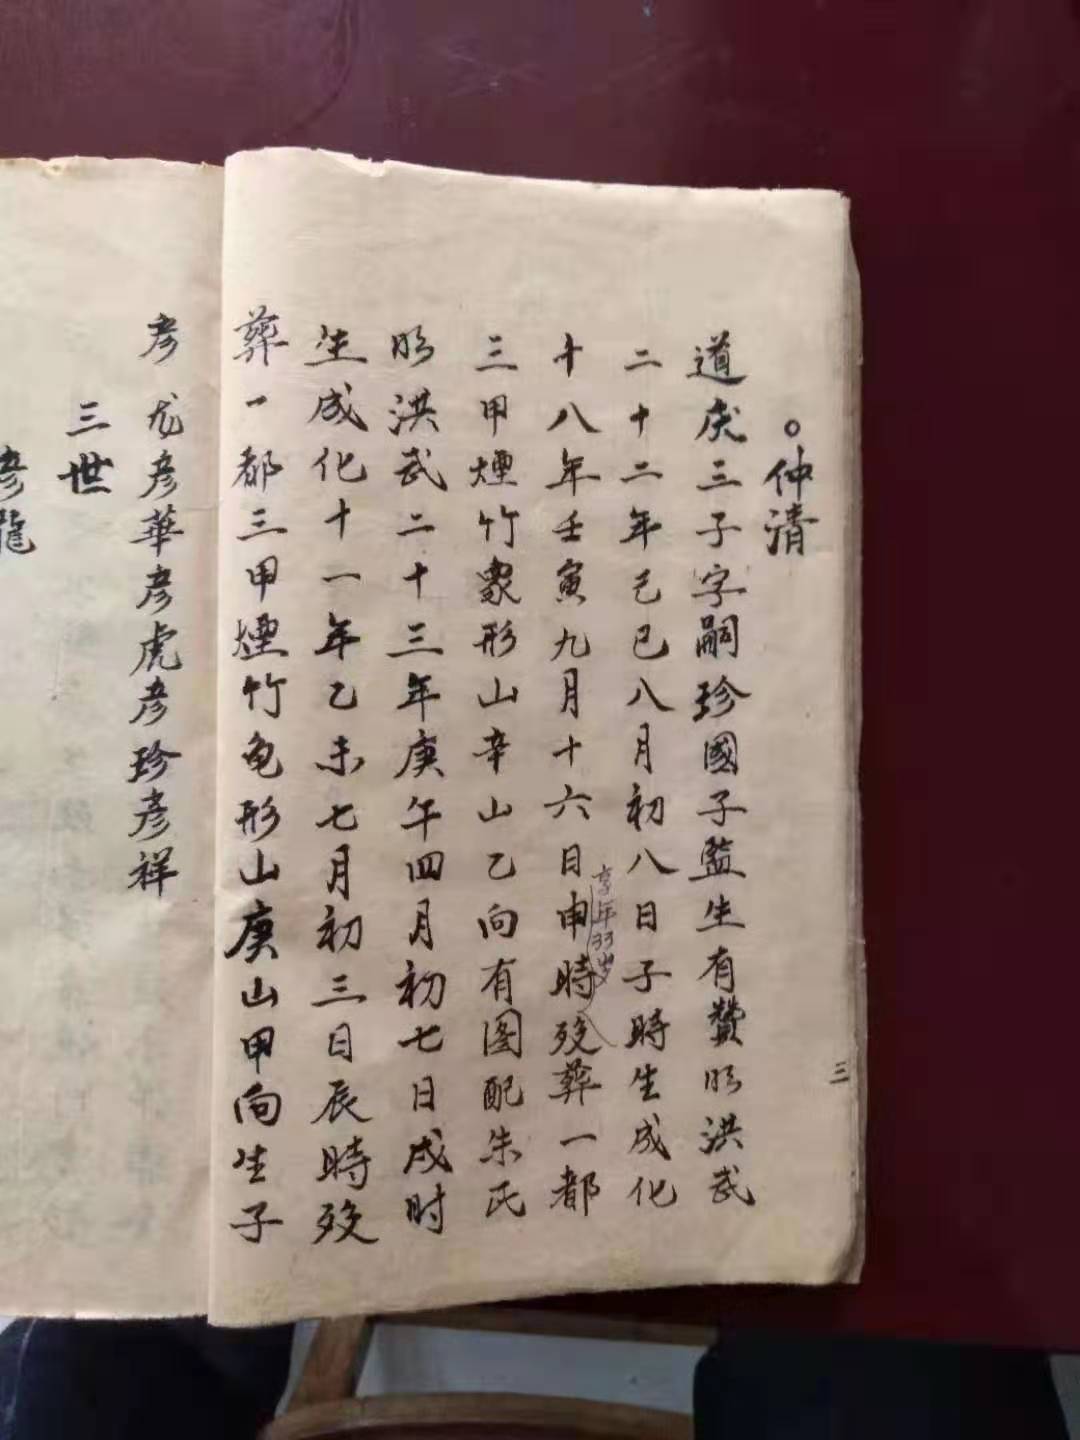 。仲清
道庆三子字嗣珍國子監生有贊明洪武
二十二年己巳八月初八日子時生成化
十八年壬寅九月十六日申時殁葬一都
享年33岁
三甲煙竹象形山辛山乙向有图配朱氏
明洪武二十三年庚午四月初七日戌时
生成化十一年乙未七月初三日辰時殁
葬一都三甲煙竹龟形山庚山甲向生子
彦龙彦華彦虎彦珍彦祥
三世
彦龍
三